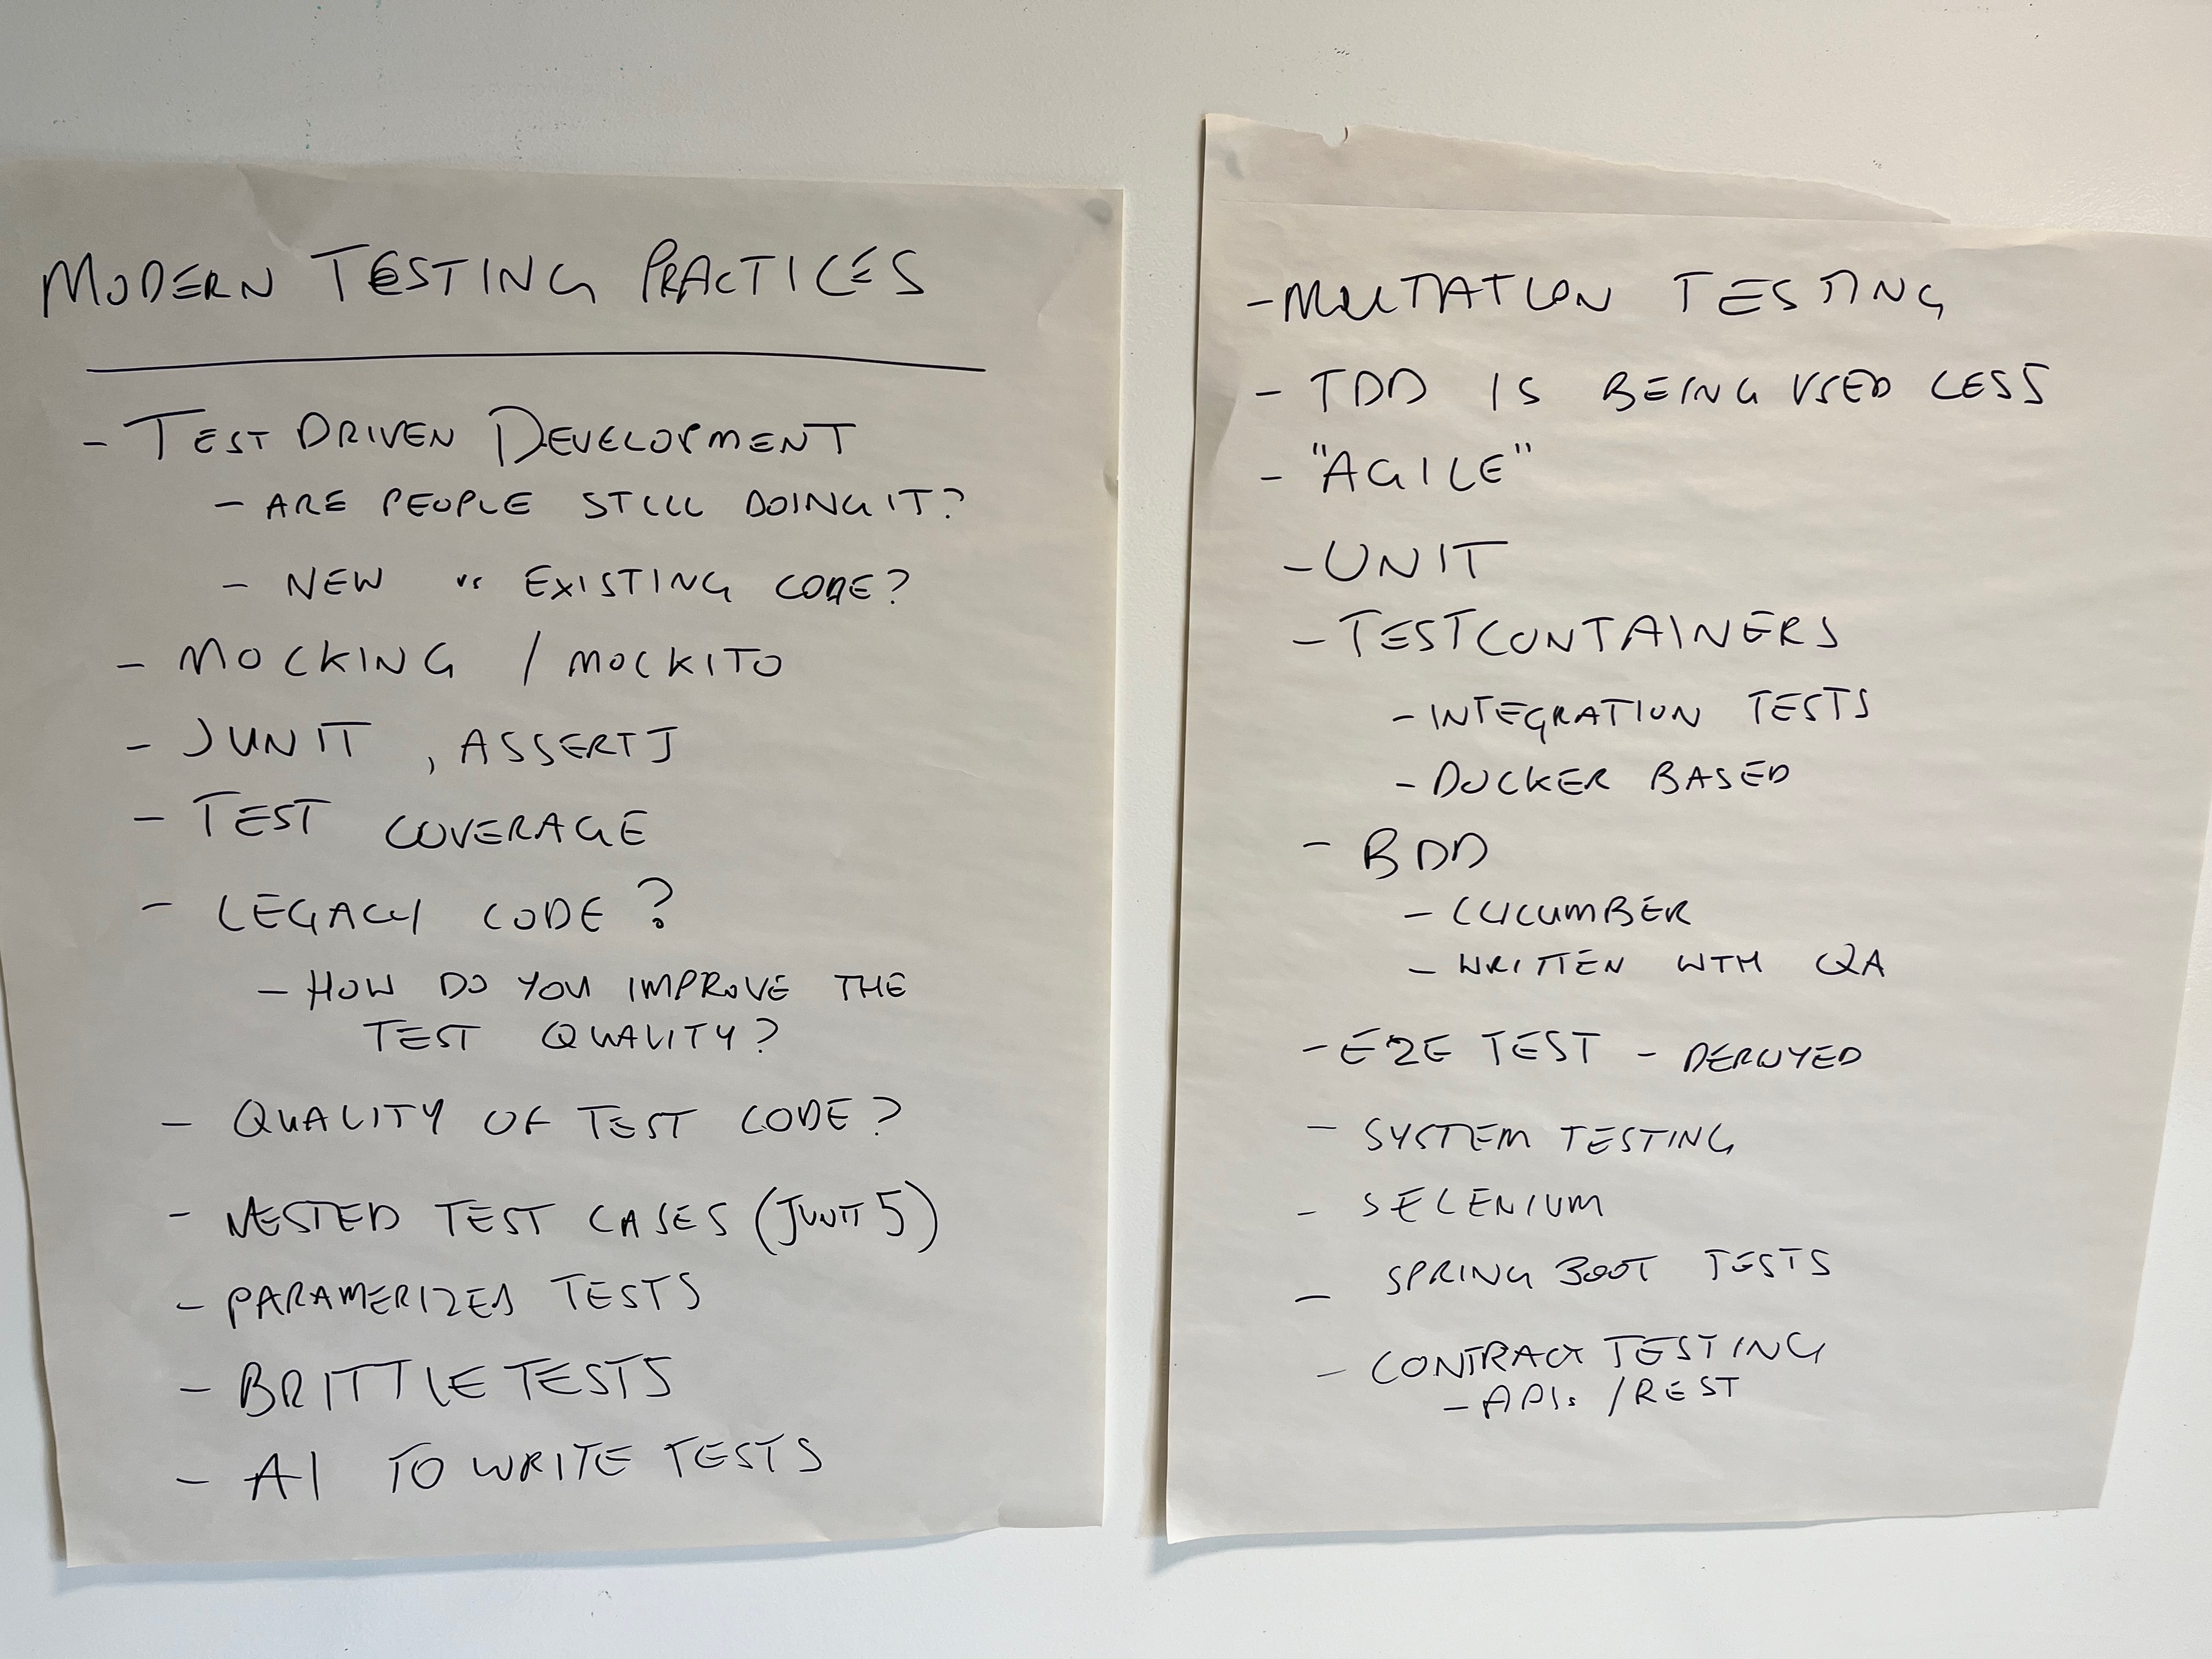 MODERN TESTING PRACTICES
- TEST DRIVEN DEVELOPMENT
- ARE PEOPLE STILL DOING IT?
- NEW vs EXISTING CODE?
- MOCKING / MOCKITO
- JUNIT , ASSERTJ
- TEST COVERAGE
- LEGACY CODE?
- HOW DO YOU IMPROVE THE
TEST QUALITY?
- QUALITY OF TEST CODE?
- NESTED TEST CASES (JUNIT 5)
- PARAMERIZED TESTS
- BRITTLE TESTS
- AI TO WRITE TESTS
- MUTATION TESTING
- TDD IS BEING USED LESS
- "AGILE"
- UNIT
- TESTCONTAINERS
- INTEGRATION TESTS
- DOCKER BASED
- BDD
- CUCUMBER
- WRITTEN WITH QA
- E2E TEST - DEPLOYED
- SYSTEM TESTING
- SELENIUM
- SPRING BOOT TESTS
- CONTRACT TESTING
- APIs / REST